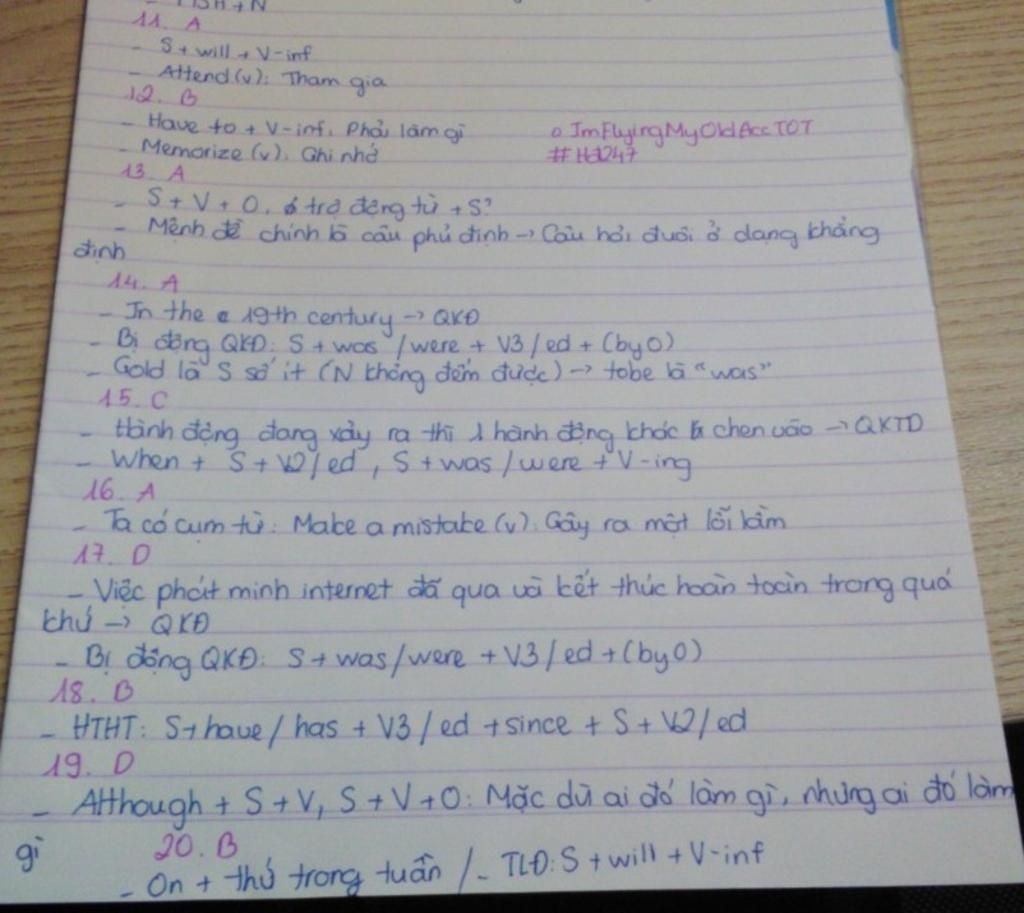 11. A
- S + will + V-inf
- Attend (v): Tham gia
12. B
- Have to + V-inf: Phải làm gì
- Memorize (v): Ghi nhớ
ImFlyingMyOldAccTOT
13. A
- S + V + O, trợ động từ + S?
- Mệnh đề chính là câu phủ định → Câu hỏi đuôi ở dạng khẳng
định
14. A
- In the 19th century → QKĐ
- Bị động QKĐ: S + was / were + V3 / ed + (by O)
- Gold là S số ít (N không đếm được) → tobe là "was"
15. C
- Hành động đang xảy ra thì 1 hành động khác chen vào → QKTD
- When + S + V2 / ed, S + was / were + V-ing
16. A
- Ta có cụm từ: Make a mistake (v): Gây ra một lỗi lầm
17. D
- Việc phát minh internet đã qua và kết thúc hoàn toàn trong quá
khứ → QKĐ
- Bị động QKĐ: S + was / were + V3 / ed + (by O)
18. B
- HTHT: S + have / has + V3 / ed + since + S + V2 / ed
19. D
- Although + S + V, S + V + O: Mặc dù ai đó làm gì, nhưng ai đó làm
gì
20. B
- On + thứ trong tuần / - TLĐ: S + will + V-inf